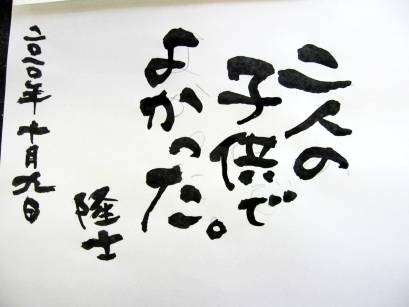 二人の
子供で
よかった。
隆士
二〇二〇年十月九日